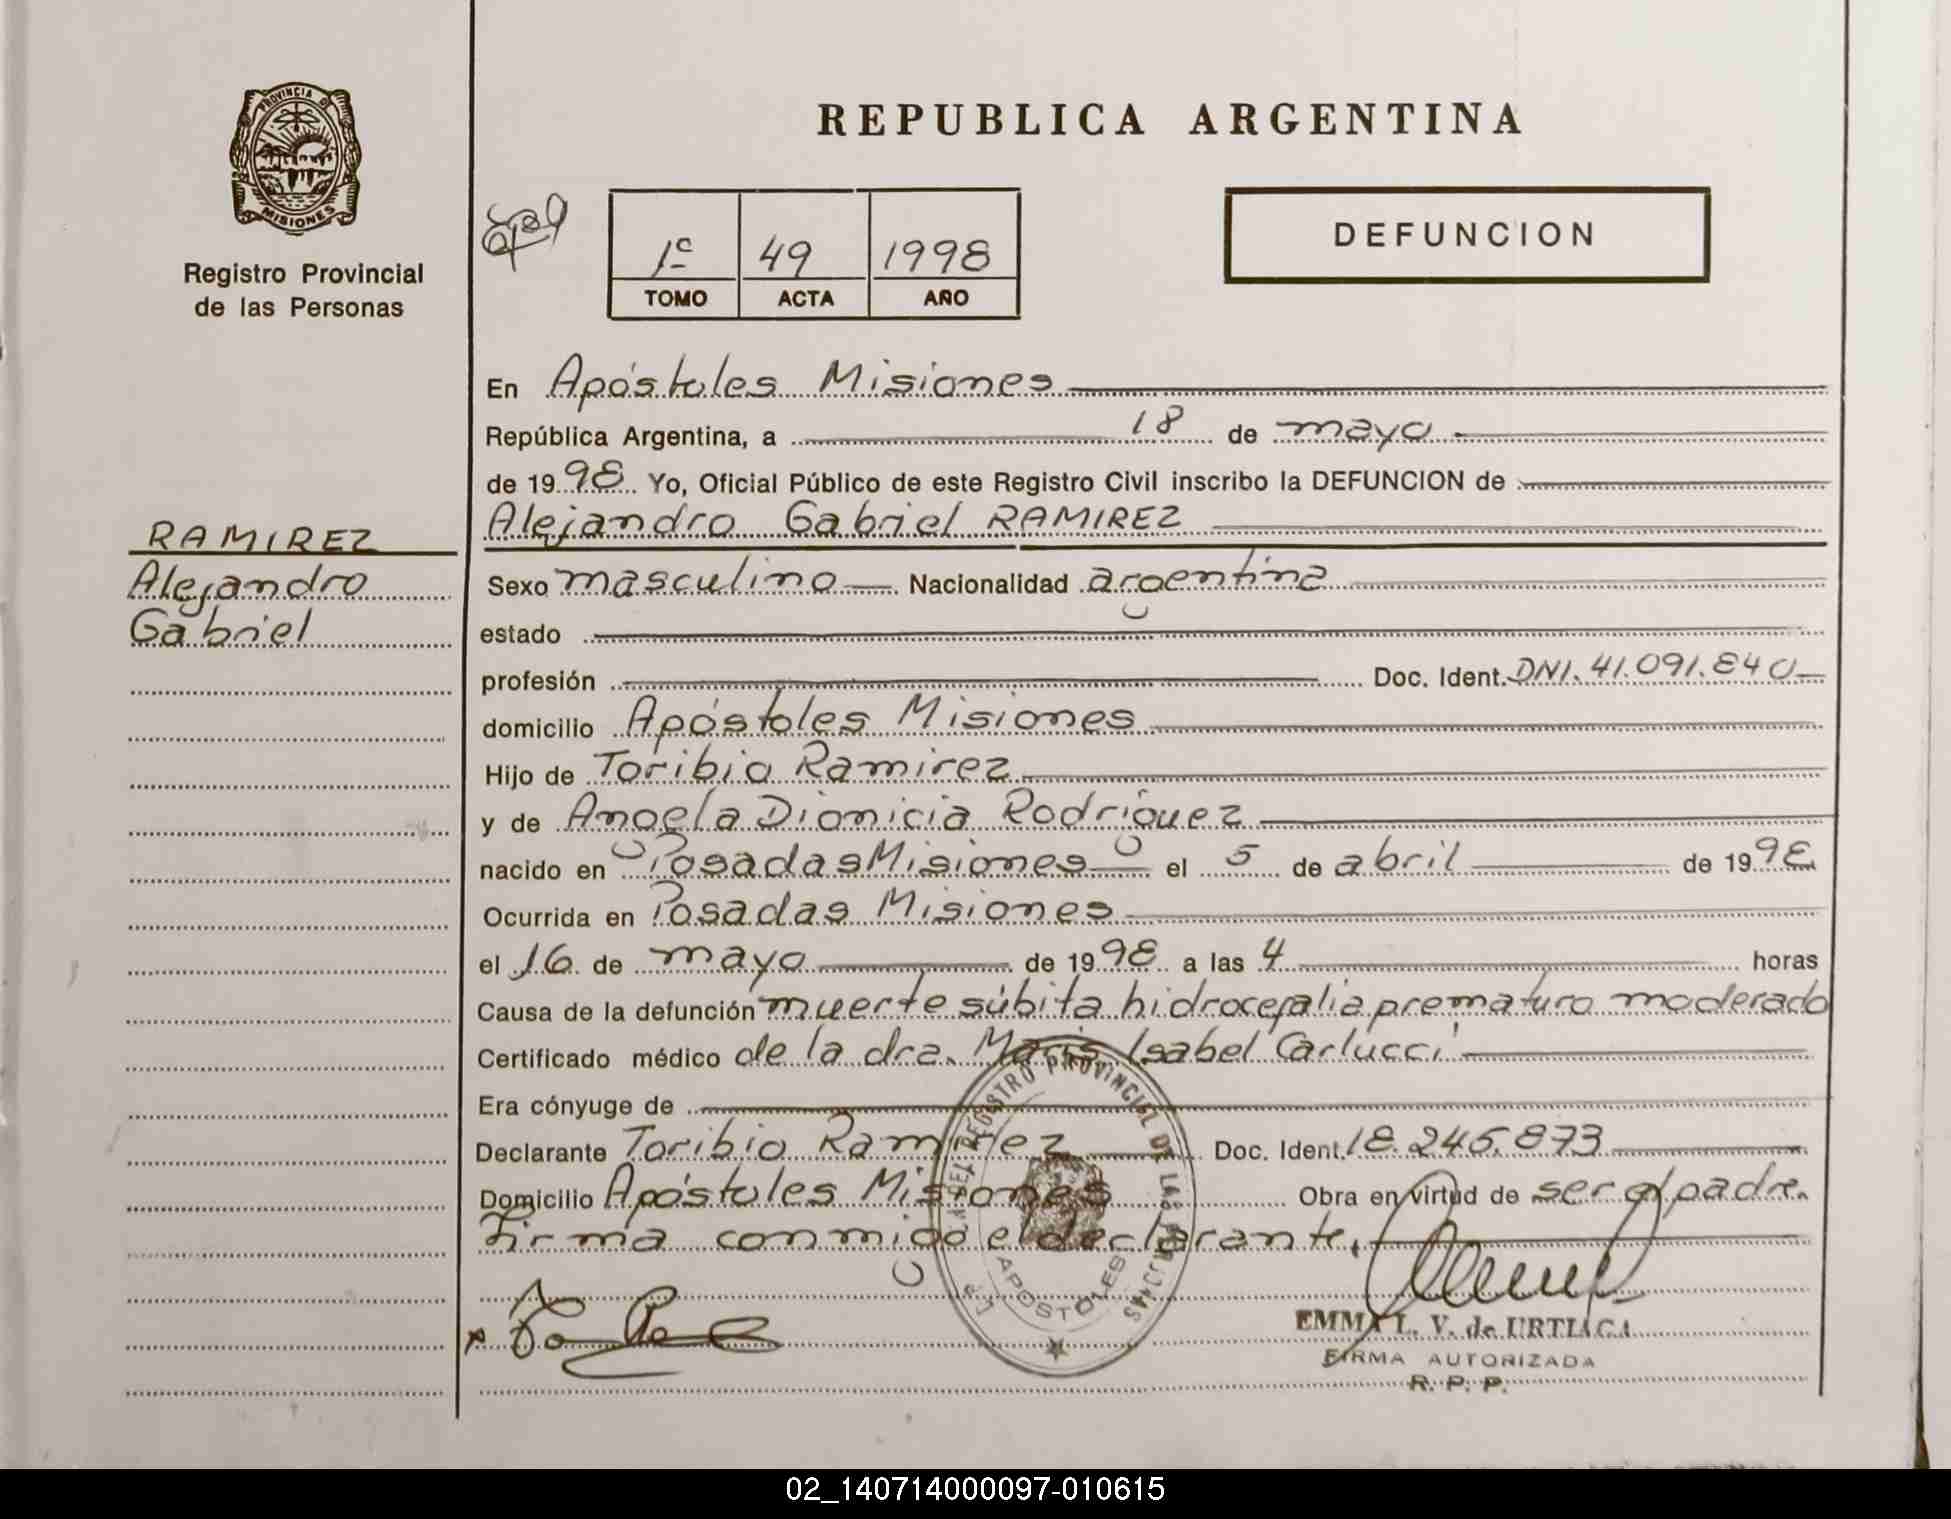 PROVINCIA DE
MISIONES
Registro Provincial
de las Personas
REPUBLICA ARGENTINA
DEFUNCION
1º 49 1998
TOMO ACTA AÑO
En Apóstoles Misiones
República Argentina, a 18 de mayo
de 1998 Yo, Oficial Público de este Registro Civil inscribo la DEFUNCION de
Alejandro Gabriel RAMIREZ
RAMIREZ
Alejandro
Gabriel
Sexo masculino Nacionalidad argentina
estado
profesión Doc. Ident. DNI. 41.091.840
domicilio Apóstoles Misiones
Hijo de Toribio Ramirez
y de Angela Dionicia Rodríguez
nacido en Posadas Misiones el 5 de abril de 1998
Ocurrida en Posadas Misiones
el 16 de mayo de 1998 a las 4 horas
Causa de la defunción muerte súbita hidrocefalia prematuro moderado
Certificado médico de la dra. Maris Isabel Carlucci
Era cónyuge de
Declarante Toribio Ramirez Doc. Ident. 18.245.873
Domicilio Apóstoles Misiones Obra en virtud de ser el padre.
Firma conmigo el declarante.
DEL REGISTRO PROVINCIAL DE LAS PERSONAS
APOSTOLES
EMMA L. V. de URTIAGA
FIRMA AUTORIZADA
R. P. P.
02_140714000097-010615